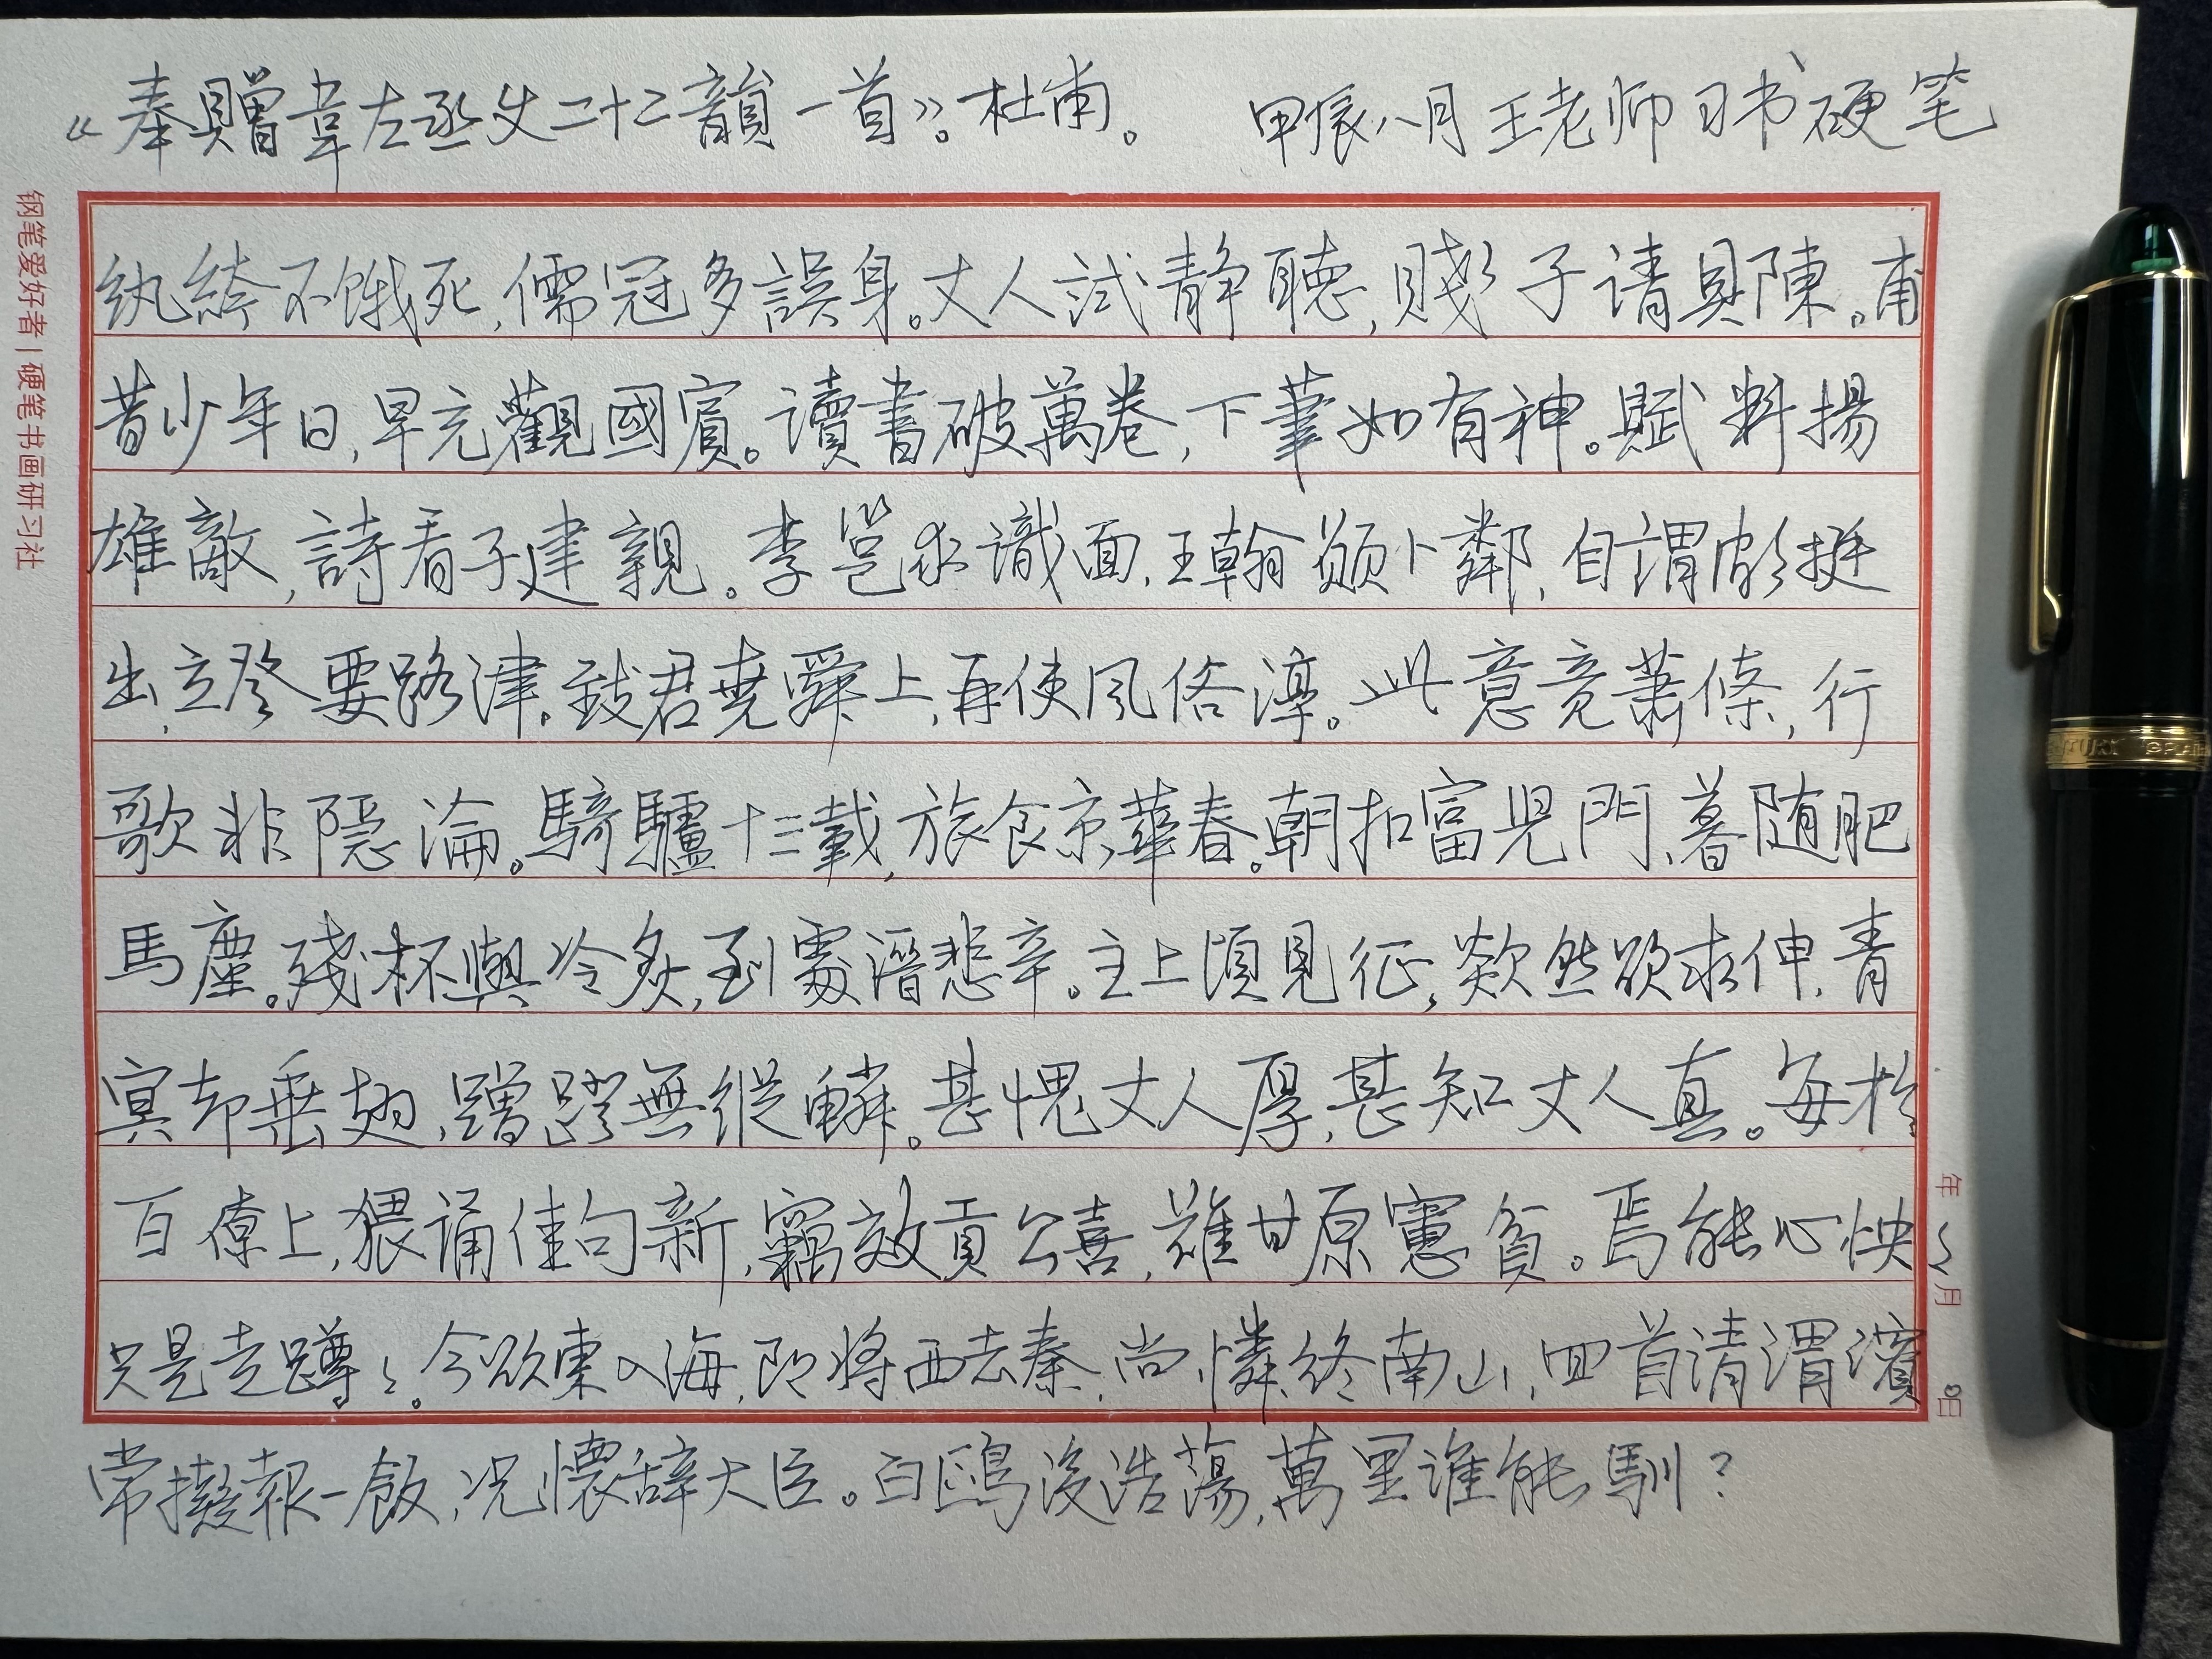 《奉贈韋左丞丈二十二韻一首》。杜甫。 甲辰八月王老师日书硬笔
钢笔爱好者|硬笔书画研习社
纨絝不餓死,儒冠多誤身。丈人試静聽,賤子请具陳。甫
昔少年日,早充觀國賓。讀書破萬卷,下筆如有神。賦料揚
雄敵,詩看子建親。李邕求識面,王翰願卜鄰,自謂頗挺
出,立登要路津。致君堯舜上,再使風俗淳。此意竟蕭條,行
歌非隱淪。騎驢十三載,旅食京華春。朝扣富兒門,暮随肥
馬塵。殘杯與冷炙,到處潛悲辛。主上頃見征,欻然欲求伸,青
冥却垂翅,蹭蹬無縱鱗。甚愧丈人厚,甚知丈人真。每於
百僚上,猥诵佳句新,竊效貢公喜,難甘原憲貧。焉能心怏々
只是走踆々。今欲東入海,即将西去秦,尚憐終南山,回首清渭濱
常擬報一飯,况懷辞大臣。白鷗没浩蕩,萬里谁能馴?
年 月 日
CENTURY PLATINUM